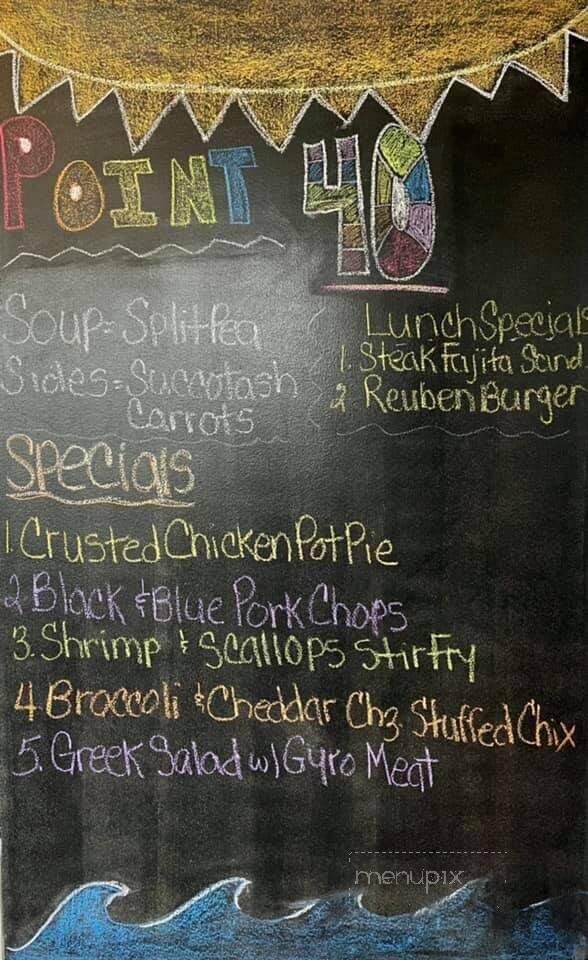 POINT 40
Soup = Split Pea
Sides = Succotash
Carrots
Lunch Specials
1. Steak Fajita Sand.
2 Reuben Burger
Specials
1. Crusted Chicken Pot Pie
2 Black & Blue Pork Chops
3. Shrimp & Scallops Stir Fry
4 Broccoli & Cheddar Chz. Stuffed Chix
5. Greek Salad w/ Gyro Meat
menupix